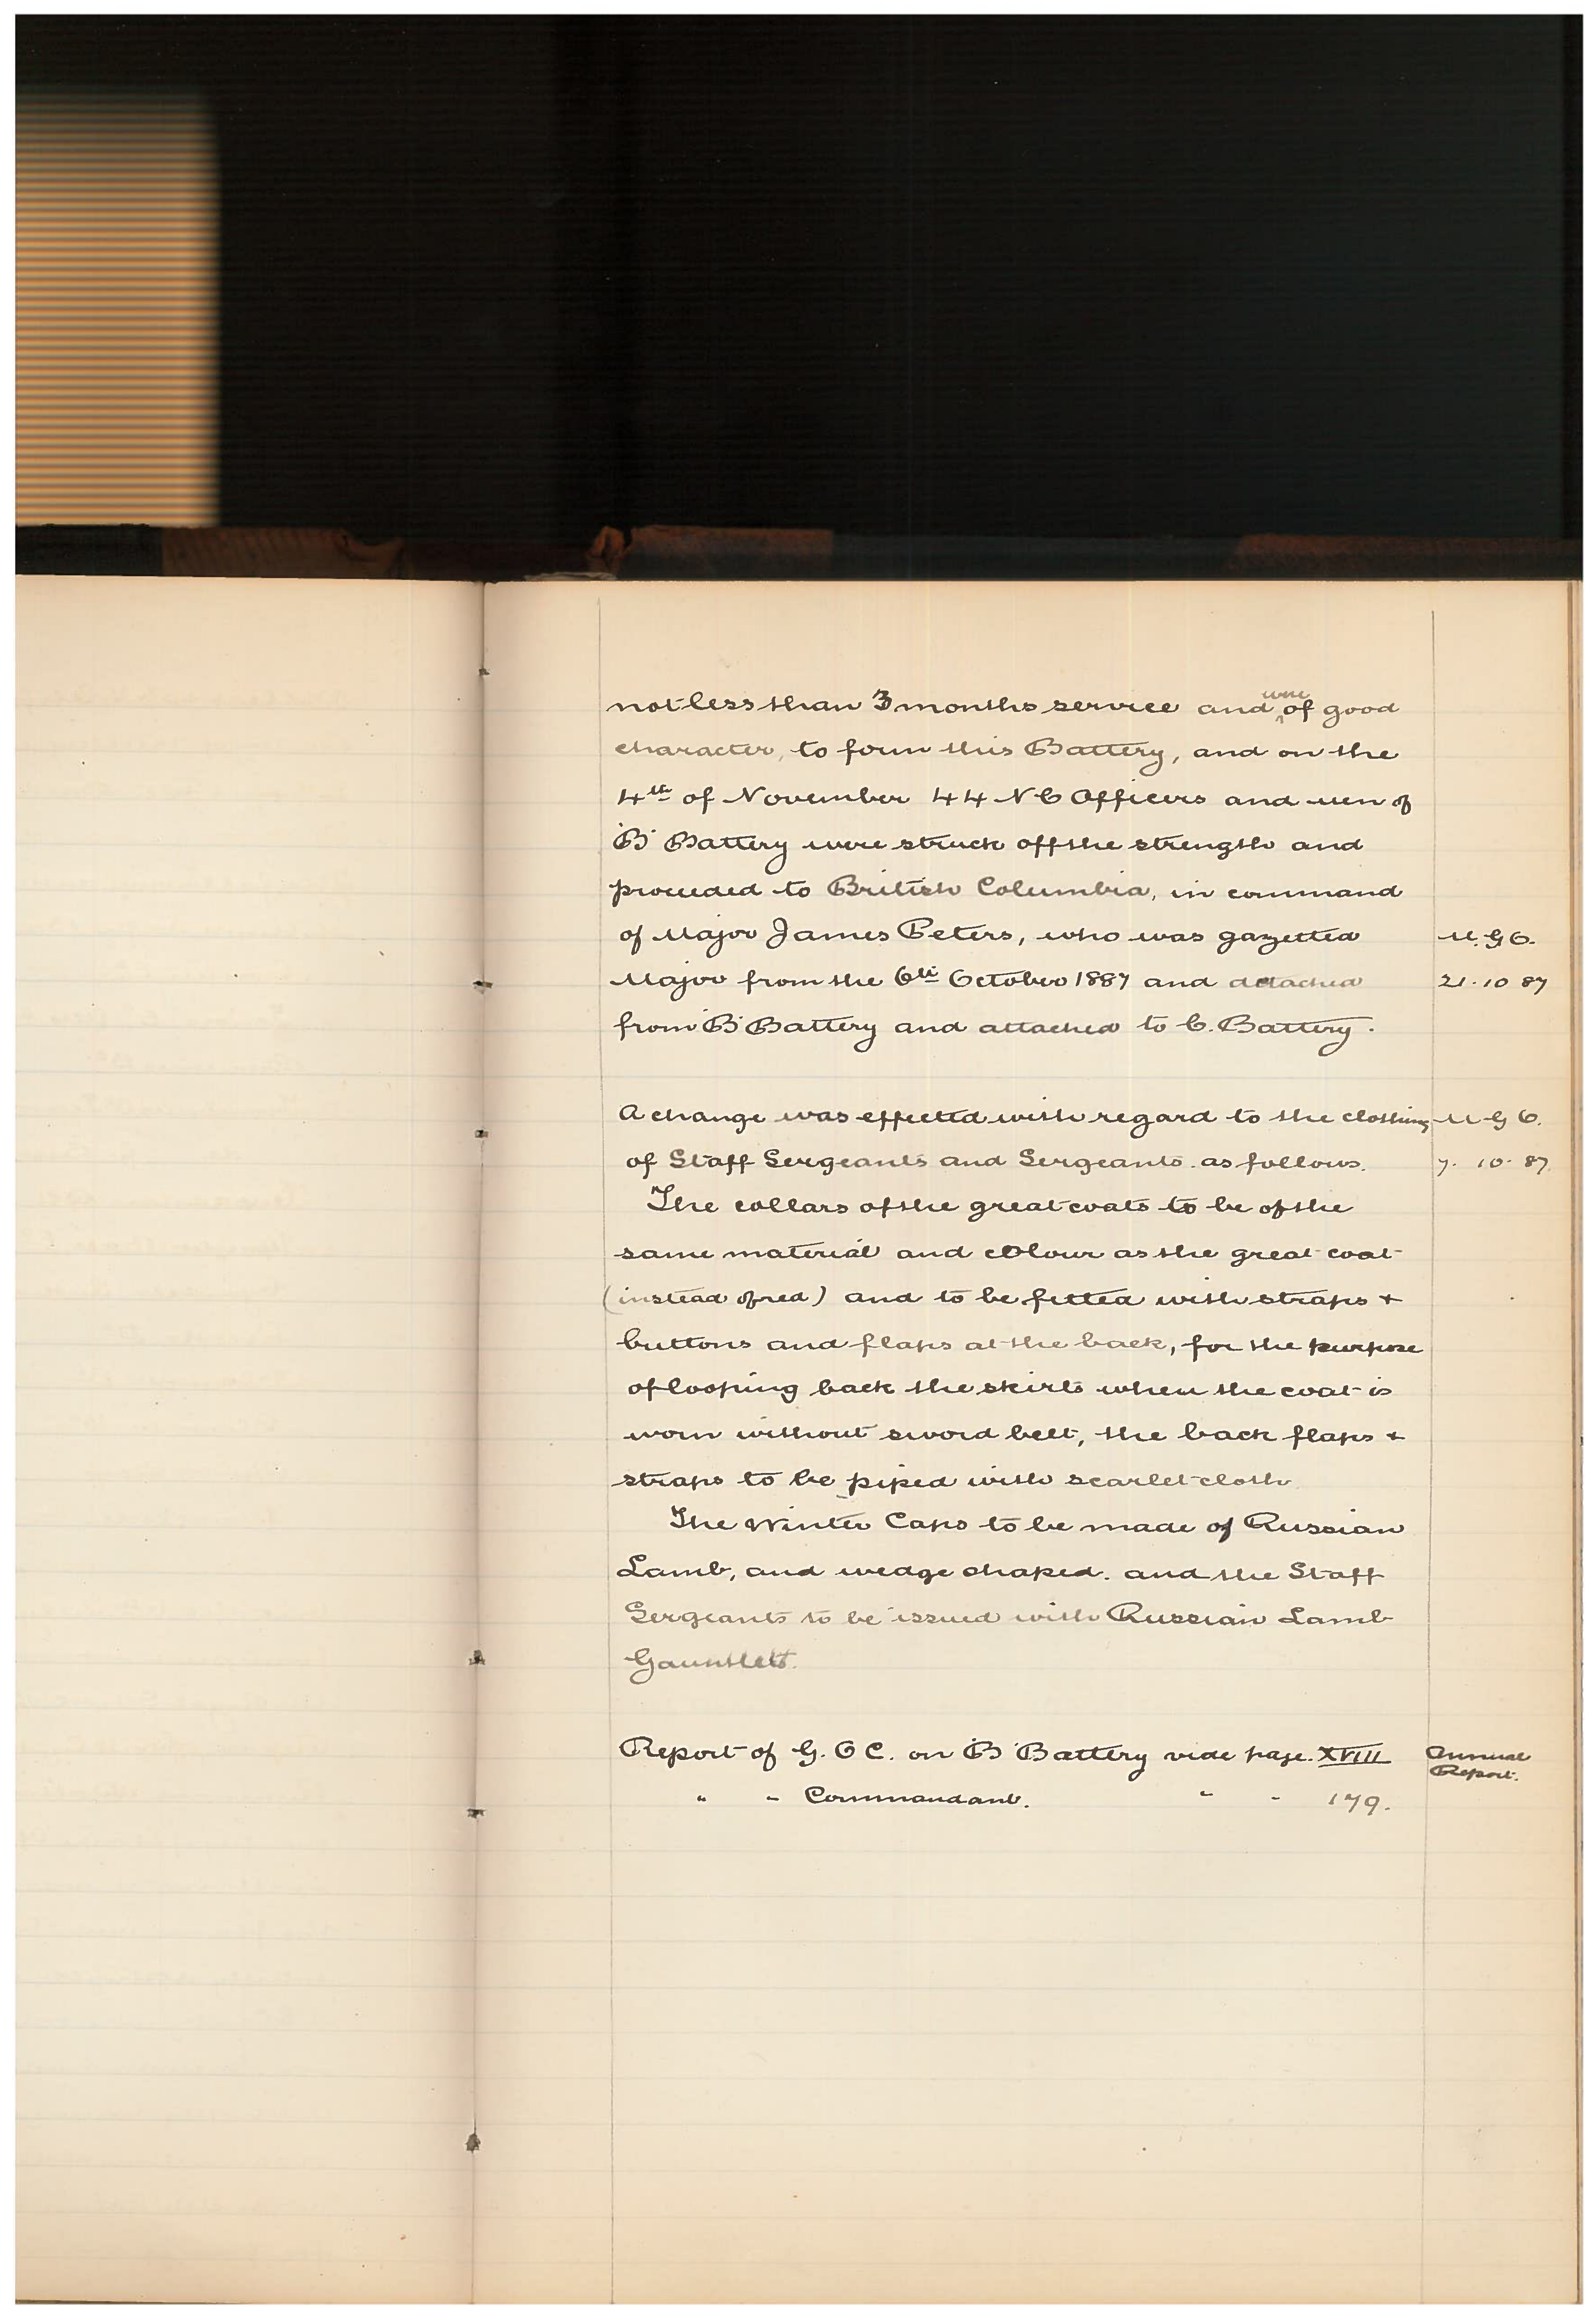 not less than 3 months service and were of good
character, to form this Battery, and on the
4th of November 44 N C Officers and men of
'B' Battery were struck off the strength and
proceeded to British Columbia, in command
of Major James Peters, who was gazetted M. G O.
Major from the 6th October 1887 and detached 21. 10 87
from 'B' Battery and attached to C. Battery.
A change was effected with regard to the clothing M G O.
of Staff Sergeants and Sergeants. as follows. 7. 10. 87.
The collars of the great coats to be of the
same material and colour as the great coat
(instead of red) and to be fitted with straps +
buttons and flaps at the back, for the purpose
of looping back the skirts when the coat is
worn without sword belt, the back flaps +
straps to be piped with scarlet cloth
The Winter Caps to be made of Russian
Lamb, and wedge shaped. and the Staff
Sergeants to be issued with Russian Lamb
Gauntlets.
Report of G. O C. on 'B' Battery vide page. XVIII Annual
Report.
" " Commandant. " " 179.